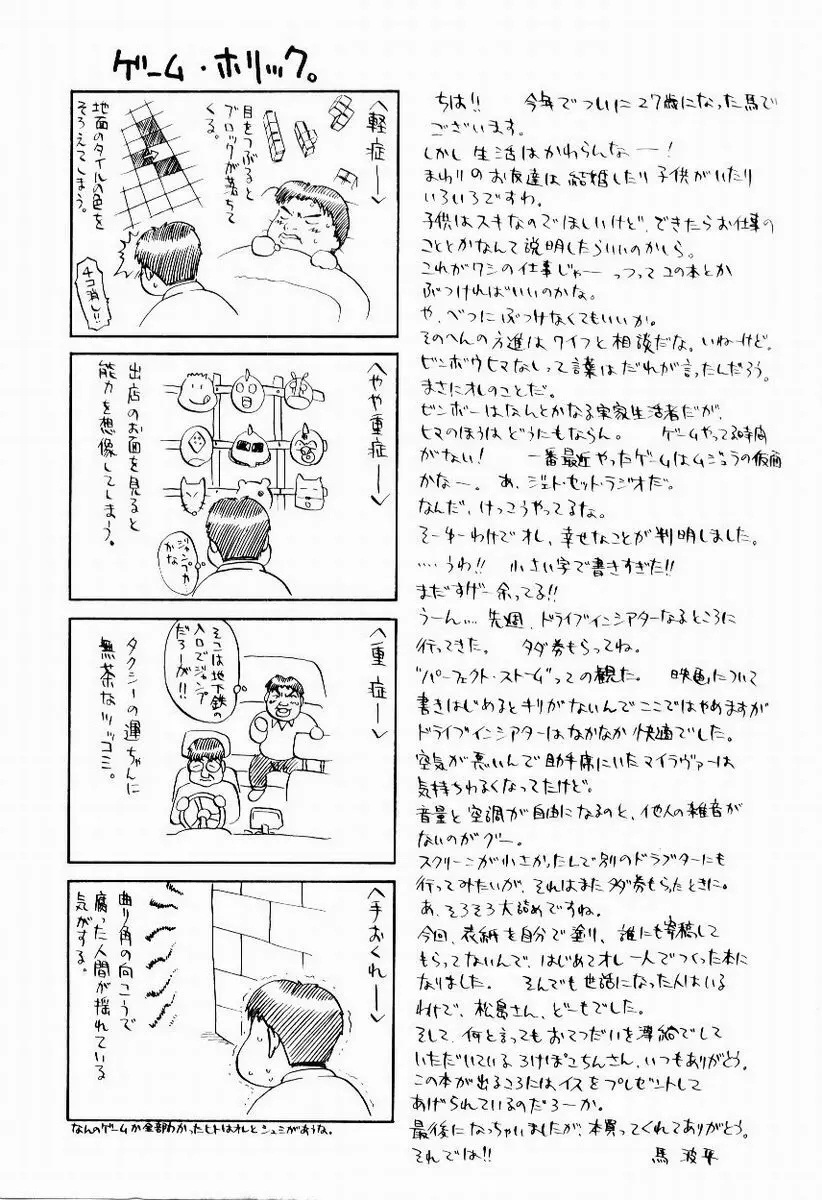 ゲーム・ホリック。
〈軽症〉
目をつぶると
ブロックが落ちて
くる。
地面のタイルの色を
そろえてしまう。
4コ消し!!
〈やや重症〉
出店のお面を見ると
能力を想像してしまう。
ジャンプカ
かな
〈重症〉
そこは地下鉄の
入口でジャンプ
だろーが!!
タクシーの運ちゃんに
無茶なツッコミ。
〈手おくれ〉
曲り角の向こうで
腐った人間が揺れている
気がする。
なんのゲームか全部わかったヒトはオレとシュミがあうな。
ちは!! 今年でついに27歳になった馬で
ございます。
しかし生活はかわらんなー!
まわりのお友達は結婚したり子供がいたり
いろいろですわ。
子供はスキなのでほしいけど、できたらお仕事の
こととかなんて説明したらいいのかしら。
これがワシの仕事じゃー っつってコの本とか
ぶつければいいのかな。
や、べつにぶつけなくてもいいか。
そのへんの方進はワイフと相談だな。いねーけど。
ビンボウヒマなしって言葉はだれが言ったんだろう。
まさにオレのことだ。
ビンボーはなんとかなる実家生活者だが、
ヒマのほうはどうにもならん。 ゲームやってる時間
がない! 一番最近やったゲームはムジュラの仮面
かなー。あ、ジェト・セット・ラジオだ。
なんだ、けっこうやってるな。
そーゆーわけでオレ、幸せなことが判明しました。
…うわ!! 小さい字で書きすぎた!!
まだすげー余ってる!!
うーん… 先週、ドライブインシアターなるところに
行ってきた。 タダ券もらってね。
"パーフェクト・ストーム"っての観た。 映画について
書きはじめるとキリがないんでここではやめますが
ドライブインシアターはなかなか快適でした。
空気が悪いんで助手席にいたマイラヴァーは
気持ちわるくなってたけど。
音量と空調が自由になるのと、他人の雑音が
ないのがグー。
スクリーンが小さかったしで別のドラブターにも
行ってみたいが、それはまたタダ券もらたときに。
あ、そろそろ大詰めですね。
今回、表紙を自分で塗り、誰にも寄稿して
もらってないんで、はじめてオレ一人でつくった本に
なりました。 そんでも世話になった人はいる
わけで、松島さん、どーもでした。
そして、何と言ってもおてつだいを薄給でして
いただいている ろけぽこちんさん、いつもありがとう。
この本が出るころにはイスをプレゼントして
あげられているのだろーか。
最後になっちゃいましたが、本買ってくれてありがとう。
それでは!! 馬 波平